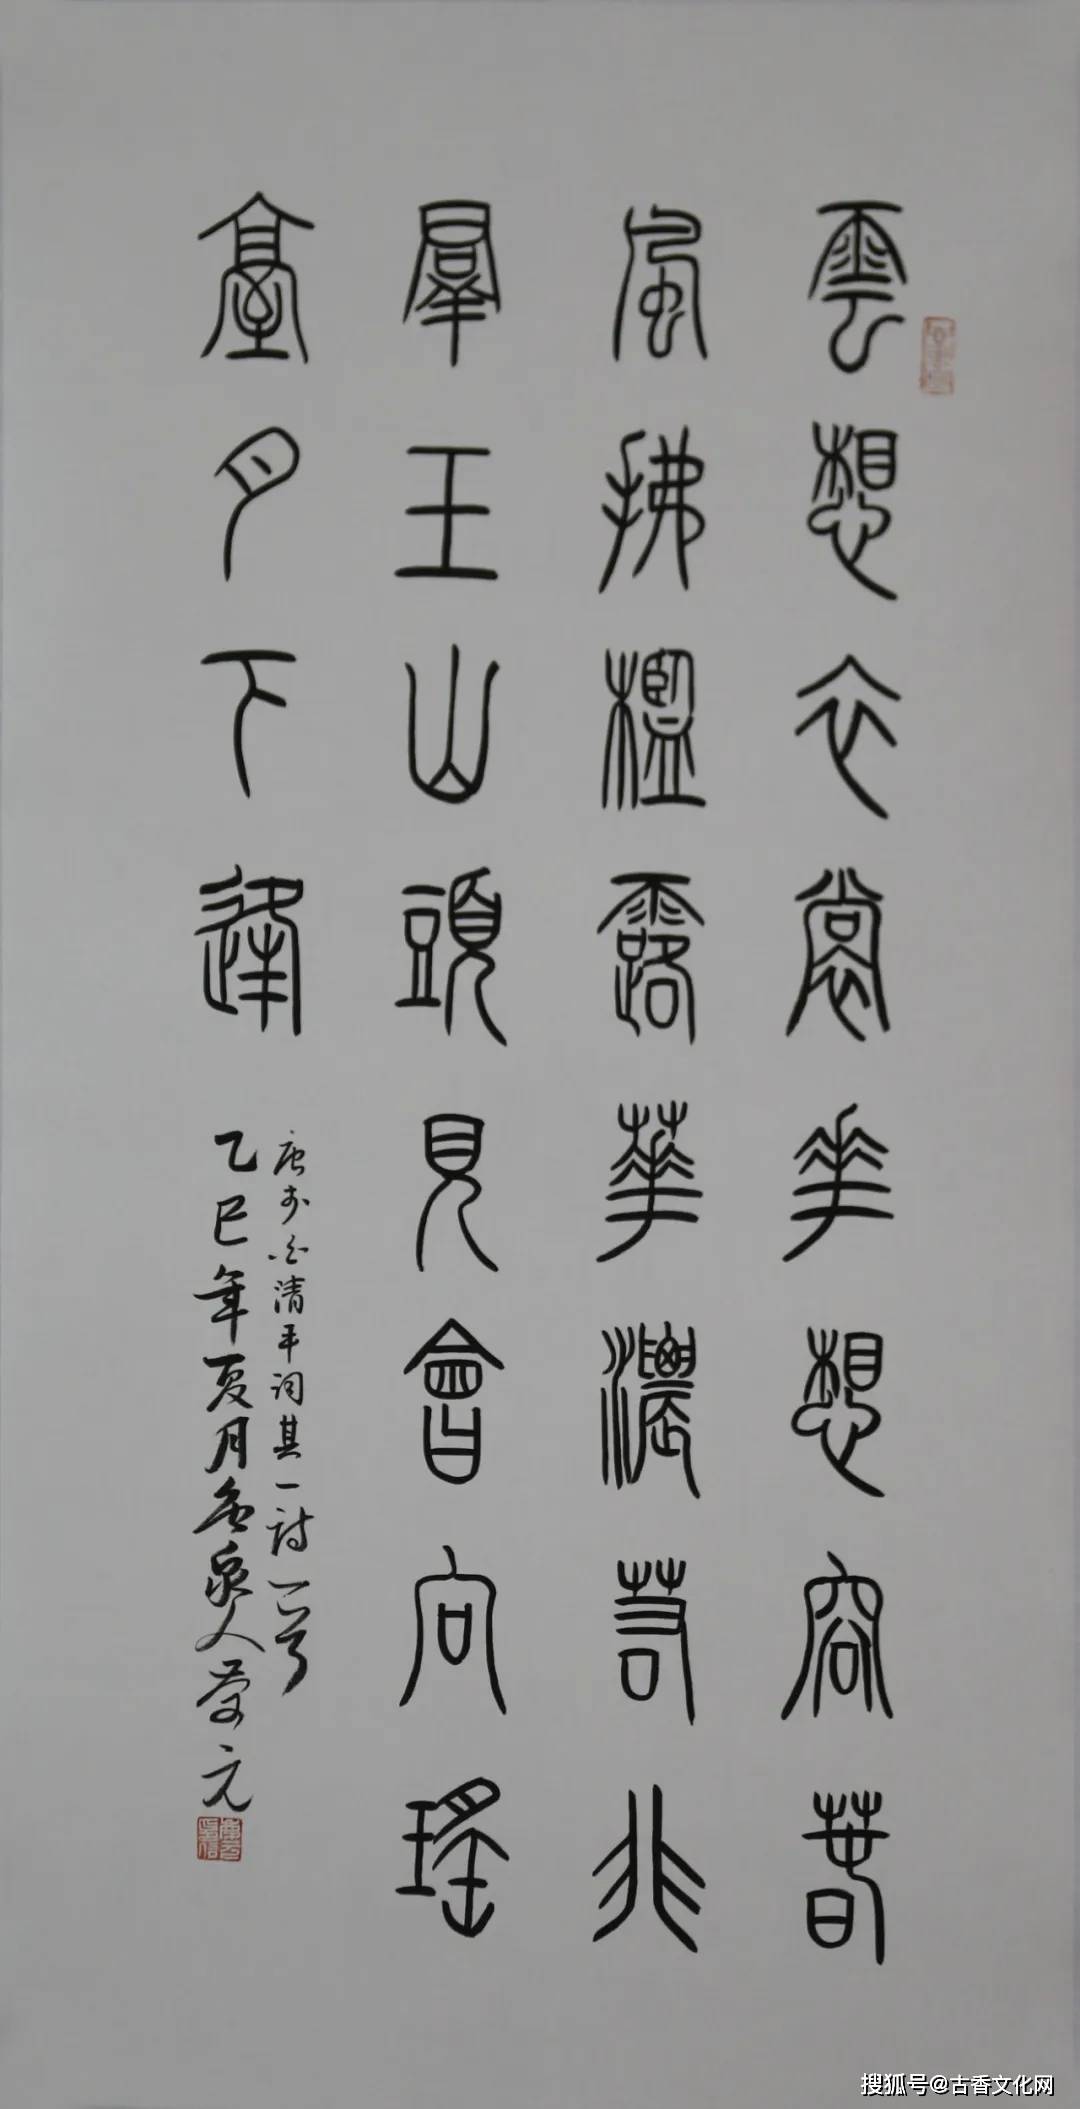 雲想衣裳花想容春
風拂檻露華濃若非
羣玉山頭見會向瑤
臺月下逢
唐李白清平词其一诗一首
乙巳年夏月泉人元
搜狐号@古香文化网